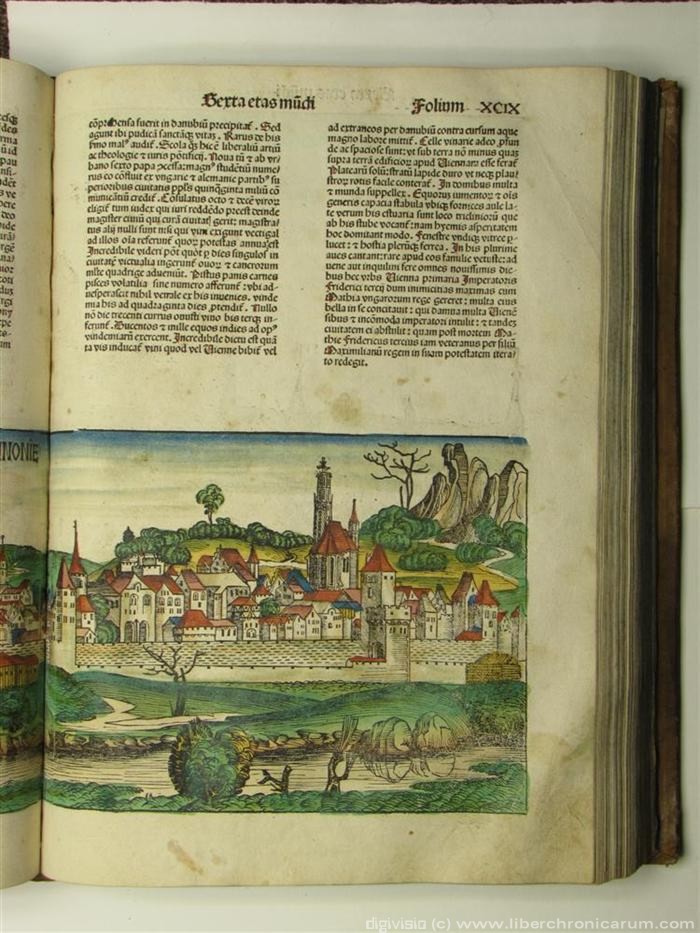 Sexta etas mũdi
Foliũm XCIX
cõprehensa fuerit in danubiũ precipitat᷒. Sed
agunt ibi pudicã sanctãq᷒ vitaʒ. Rarus de his
rumo mal᷒ audit᷒. Scola q᷒ʒ hic ẽ liberaliũ artiũ
ac theologie ⁊ iuris põtificij. Noua tñ ⁊ ab vr
bano sexto papa ↄ̃cessa: magn᷒ studẽtũ nume᷒
rus eo cõfluit ex vngarie ⁊ alemanie partib᷒ su
perioribus
municãtiũ credit᷒. Cõsulatus octo ⁊ decẽ viroʀ
eligit᷒ tum iudex qui iuri reddẽdo preest deinde
magister ciuiũ qui curã ciuitat᷒ gerit: magistra᷒
tus alij nulli sunt nisi qui vini exigunt vectigal
ad illos oĩa referunt᷒ quoʀ potestas annua est
Incredibile videri põt quot ꝑ dies singulos in
ciuitatẽ victualia ingerunt᷒ ouoʀ ⁊ cancrorum
mlte quadrige adueniũt. Pistus panis carnes
pisces volatilia sine numero afferunt᷒: vbi ad᷒
uesperascit nihil venale ex his inuenies. vinde
mia his ad quadraginta dies ꝓtendit᷒. Nullo
nõ die trecenti currus onusti vino bis terq᷒ in᷒
ferunt᷒. Ducentos ⁊ mille equos indies ad op᷒
vindemiarũ exercent. Incredibile dictu est quã
ta vis inducat᷒ vini quod vel Vienne bibit᷒ vel
ad extraneos per danubiũ contra cursum aque
magno labore mittit᷒. Celle vinarie adeo ꝓfun
de ac spaciose sunt: vt sub terra nõ minus quaʒ
supra terrã edificioʀ apud Viennaʒ esse ferat᷒
Platearũ solũ: stratũ lapide duro vt neq᷒ plau᷒
stroʀ rotis facile conterat᷒. In domibus multa
⁊ munda suppellex. Equoruʒ iumentoʀ ⁊ oĩs
generis capacia stabula vbiq᷒ fornices aule la᷒
te verum his estuaria sunt loco tricliniorũ que
ab his stube vocant᷒: nam hyemis asperitatẽ
hoc domitant modo. Fenestre vndiq᷒ vitree ꝑ
lucet: ⁊ hostia pleruq᷒ ferrea. In his plurime
aues cantant: rare apud eos familie vetuste: ad
uene aut inquilini fere omnes nouissimis die᷒
bus hec vrbs Vienna primaria Imperatoris
Friderici tercij dum inimicitias maximas cum
Mathia vngarorum rege gereret: multa eius
bella in se concitauit: qui damna multa Viẽnẽ
sibus ⁊ incõmoda imperatori intulit: ⁊ tandeʒ
ciuitatem ei abstulit: quam post mortem Ma᷒
thie Fridericus tercius iam veteranus per filiũ
Maximilianũ regem in suam potestatem itera᷒
to redegit.
NONIE
digivisio (c) www.liberchronicarum.com